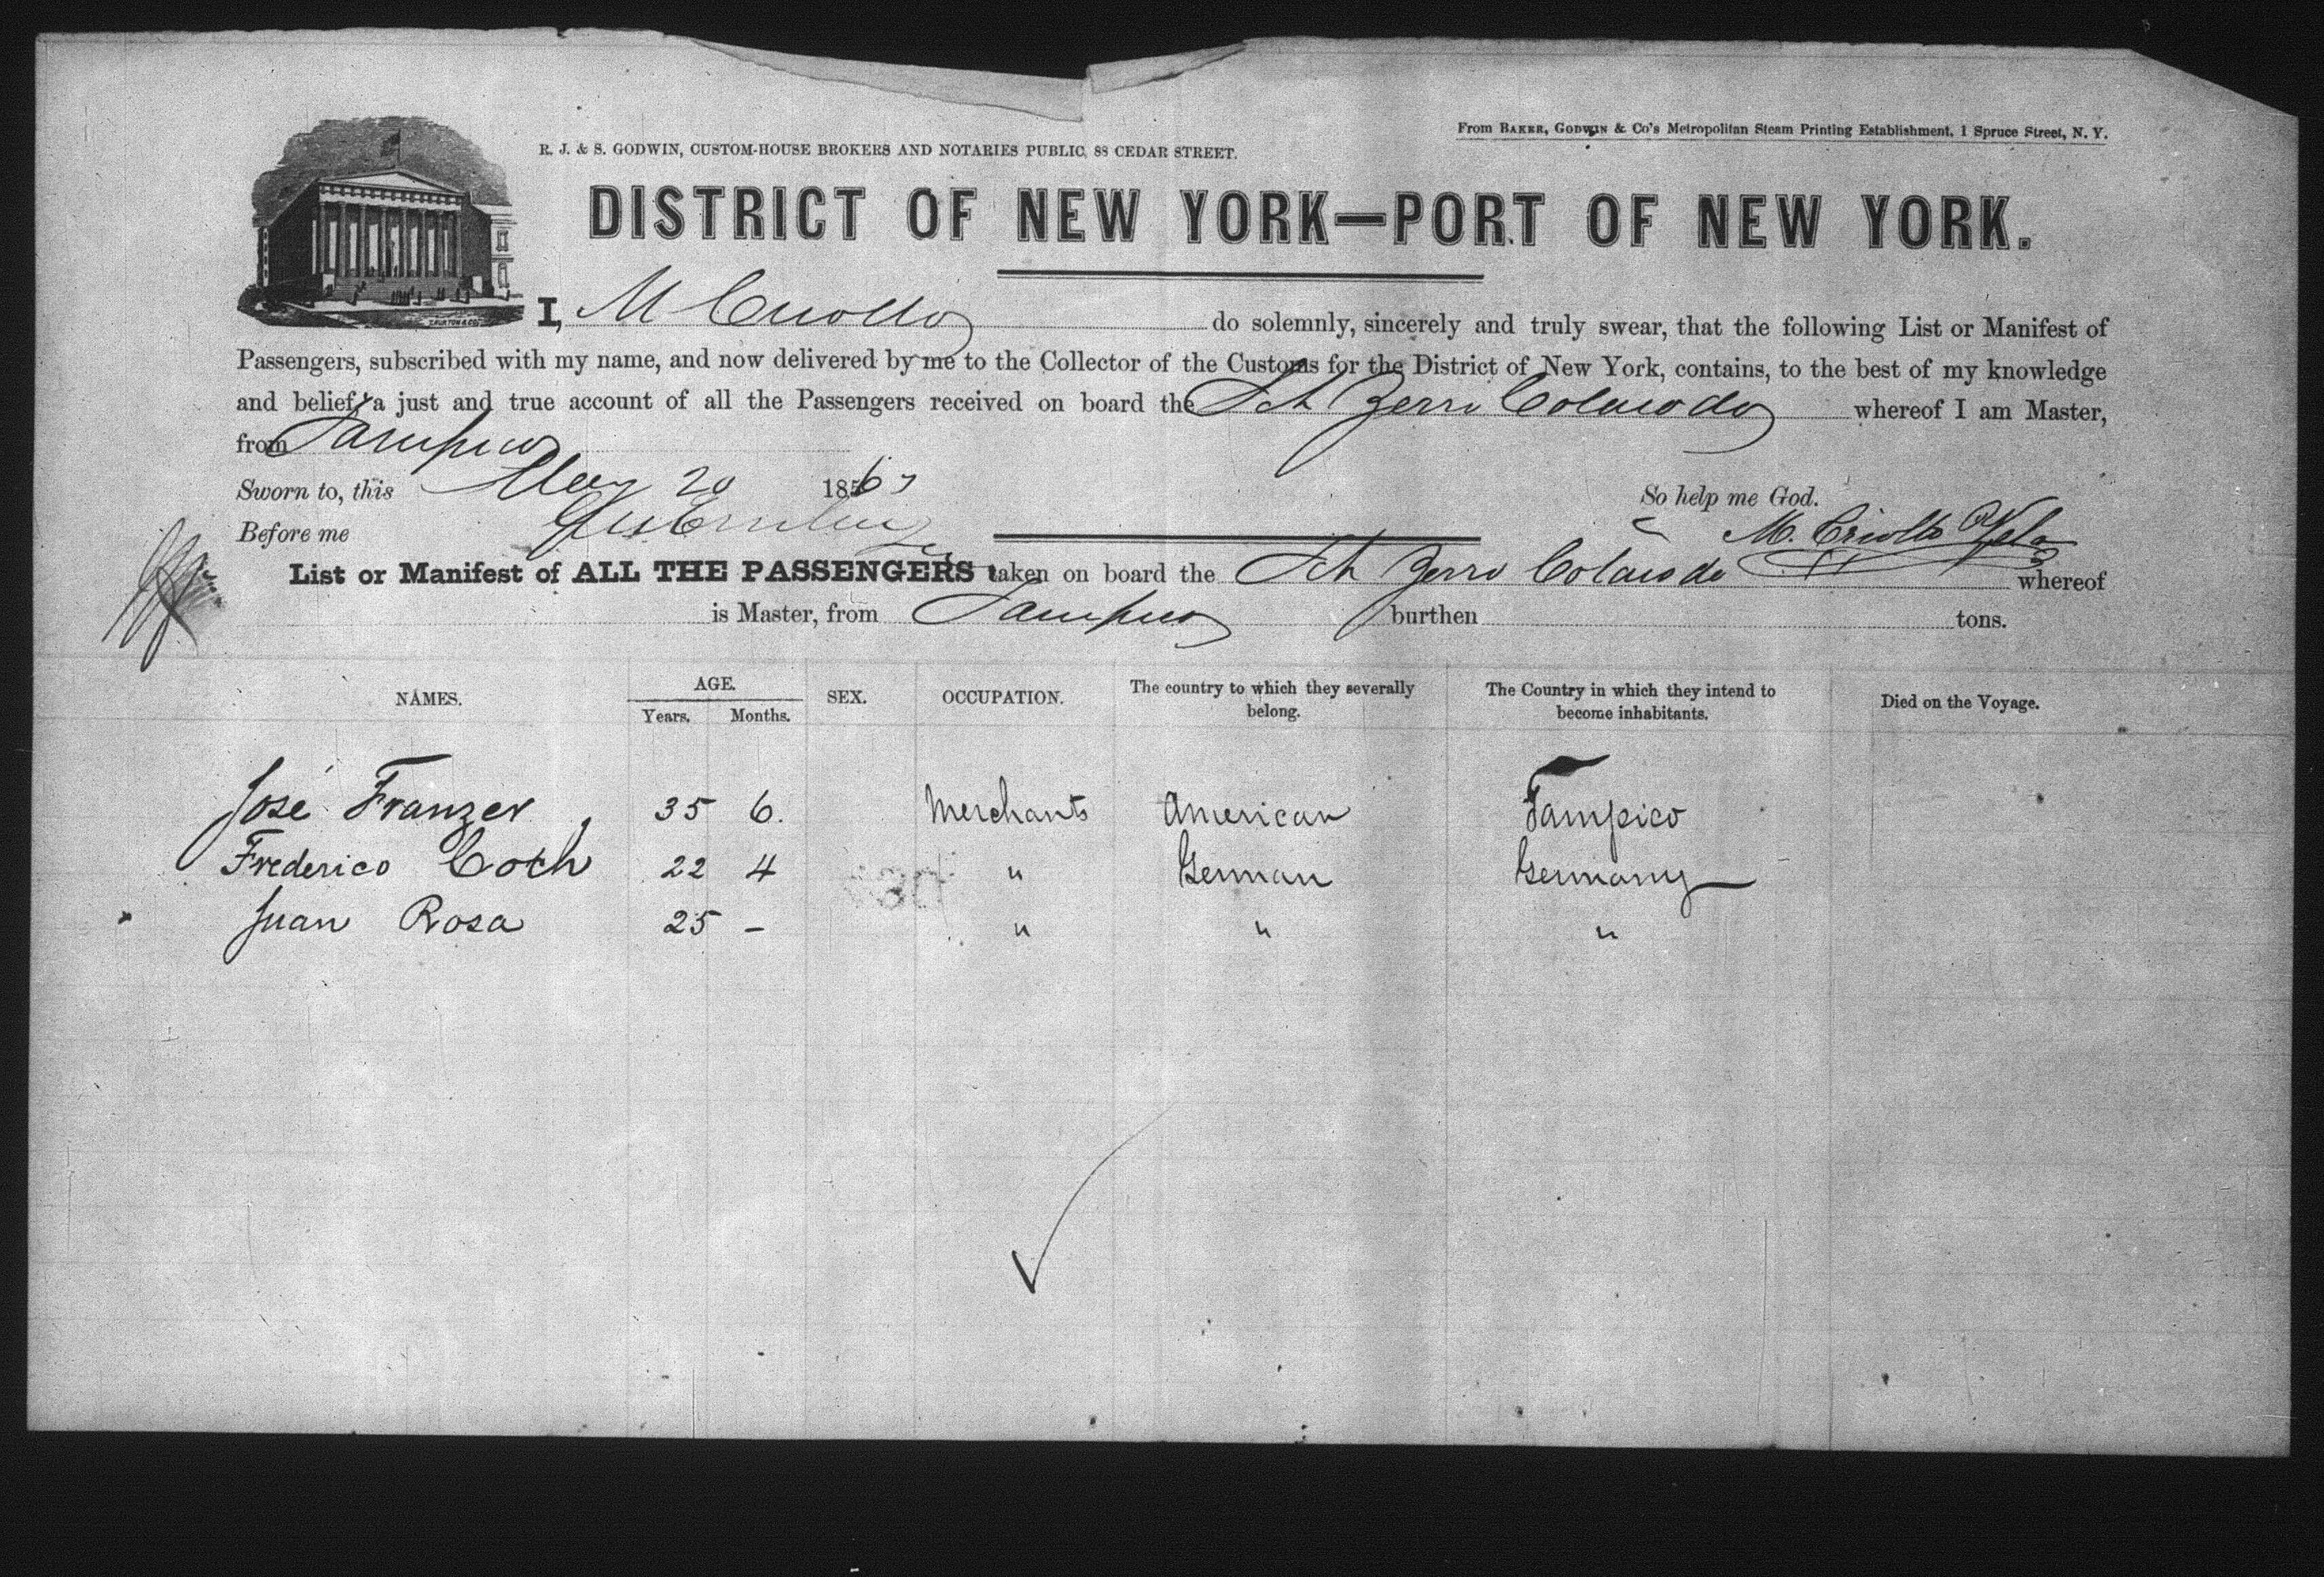 From BAKER, GODWIN & Co's Metropolitan Steam Printing Establishment, 1 Spruce Street, N. Y.
R. J. & S. GODWIN, CUSTOM-HOUSE BROKERS AND NOTARIES PUBLIC, 88 CEDAR STREET.
DISTRICT OF NEW YORK—PORT OF NEW YORK.
I, M Criollo do solemnly, sincerely and truly swear, that the following List or Manifest of
Passengers, subscribed with my name, and now delivered by me to the Collector of the Customs for the District of New York, contains, to the best of my knowledge
and belief, a just and true account of all the Passengers received on board the Sch Zerro Colorado whereof I am Master,
from Tampico
Sworn to, this May 20 186
So help me God.
Before me
M. Criollo
List or Manifest of ALL THE PASSENGERS taken on board the Sch Zerro Colorado whereof
is Master, from Tampico burthen tons.
NAMES. AGE. SEX. OCCUPATION. The country to which they severally belong. The Country in which they intend to become inhabitants. Died on the Voyage.
Years. Months.
José Franzer 35 6. Merchants American Tampico
Frederico Coch 22 4 " German Germany
Juan Rosa 25 – " " "